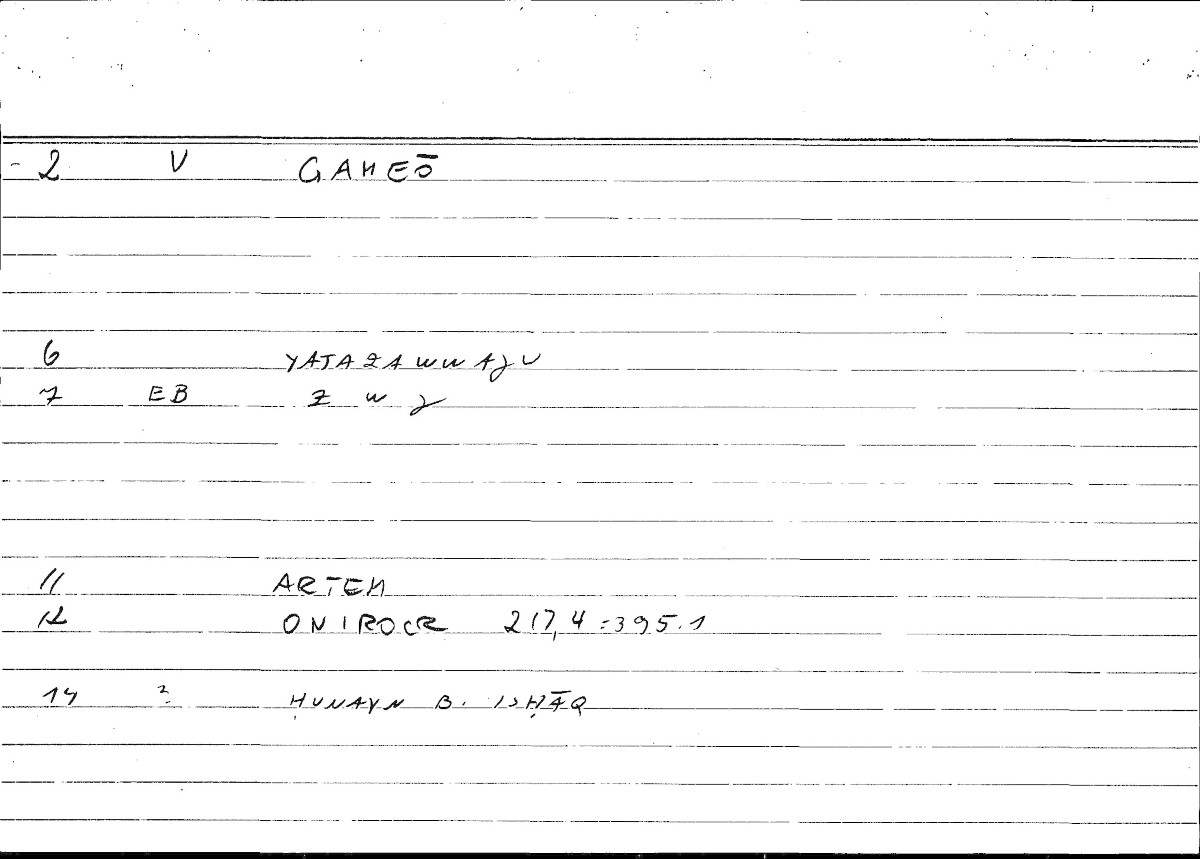 -2 V GAMEŌ
6 YATAZAWWAJU
7 EB Z W J
11 ARTEM
12 ONIROCR 217,4=395.1
14 ? ḤUNAYN B. ISḤĀQ